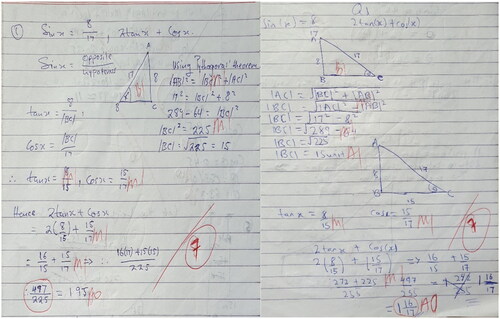 ① Sinx = 8/17, 2tanx + Cosx.
Sinx = opposite/hypotenuse
A
17
8
x
B
C
Using Pythagoras' theorem
|AB|² = |BC|² + |AC|²
17² = |BC|² + 8²
289 - 64 = |BC|²
|BC|² = 225 M
|BC| = √225 = 15
tanx = 8/|BC|
Cosx = |BC|/17
∴ tanx = 8/15 M, Cosx = 15/17 M
Hence 2tanx + Cosx
= 2(8/15) + 15/17 M
= 16/15 + 15/17 M => 16(17)+15(15)/225
∴ 497/225 = 1.95 A0
7
Q3
Sin(x) = 8
2tan(x) + cos(x)
A
17
8
B
C
|AC| = √|BC|² + |AB|²
|BC| = √|AC|² - |AB|²
|BC| = √17² - 8²
|BC| = √289 - 64
|BC| = √225
|BC| = 15 units A1
A
8
17
B
15
C
tanx = 8/15 M1
cosx = 15/17 M1
2tanx + Cos(x)
2(8/15) + (15/17) => 16/15 + 15/17
272 + 225/255 M 497/255
= 1 16/17 A0
7